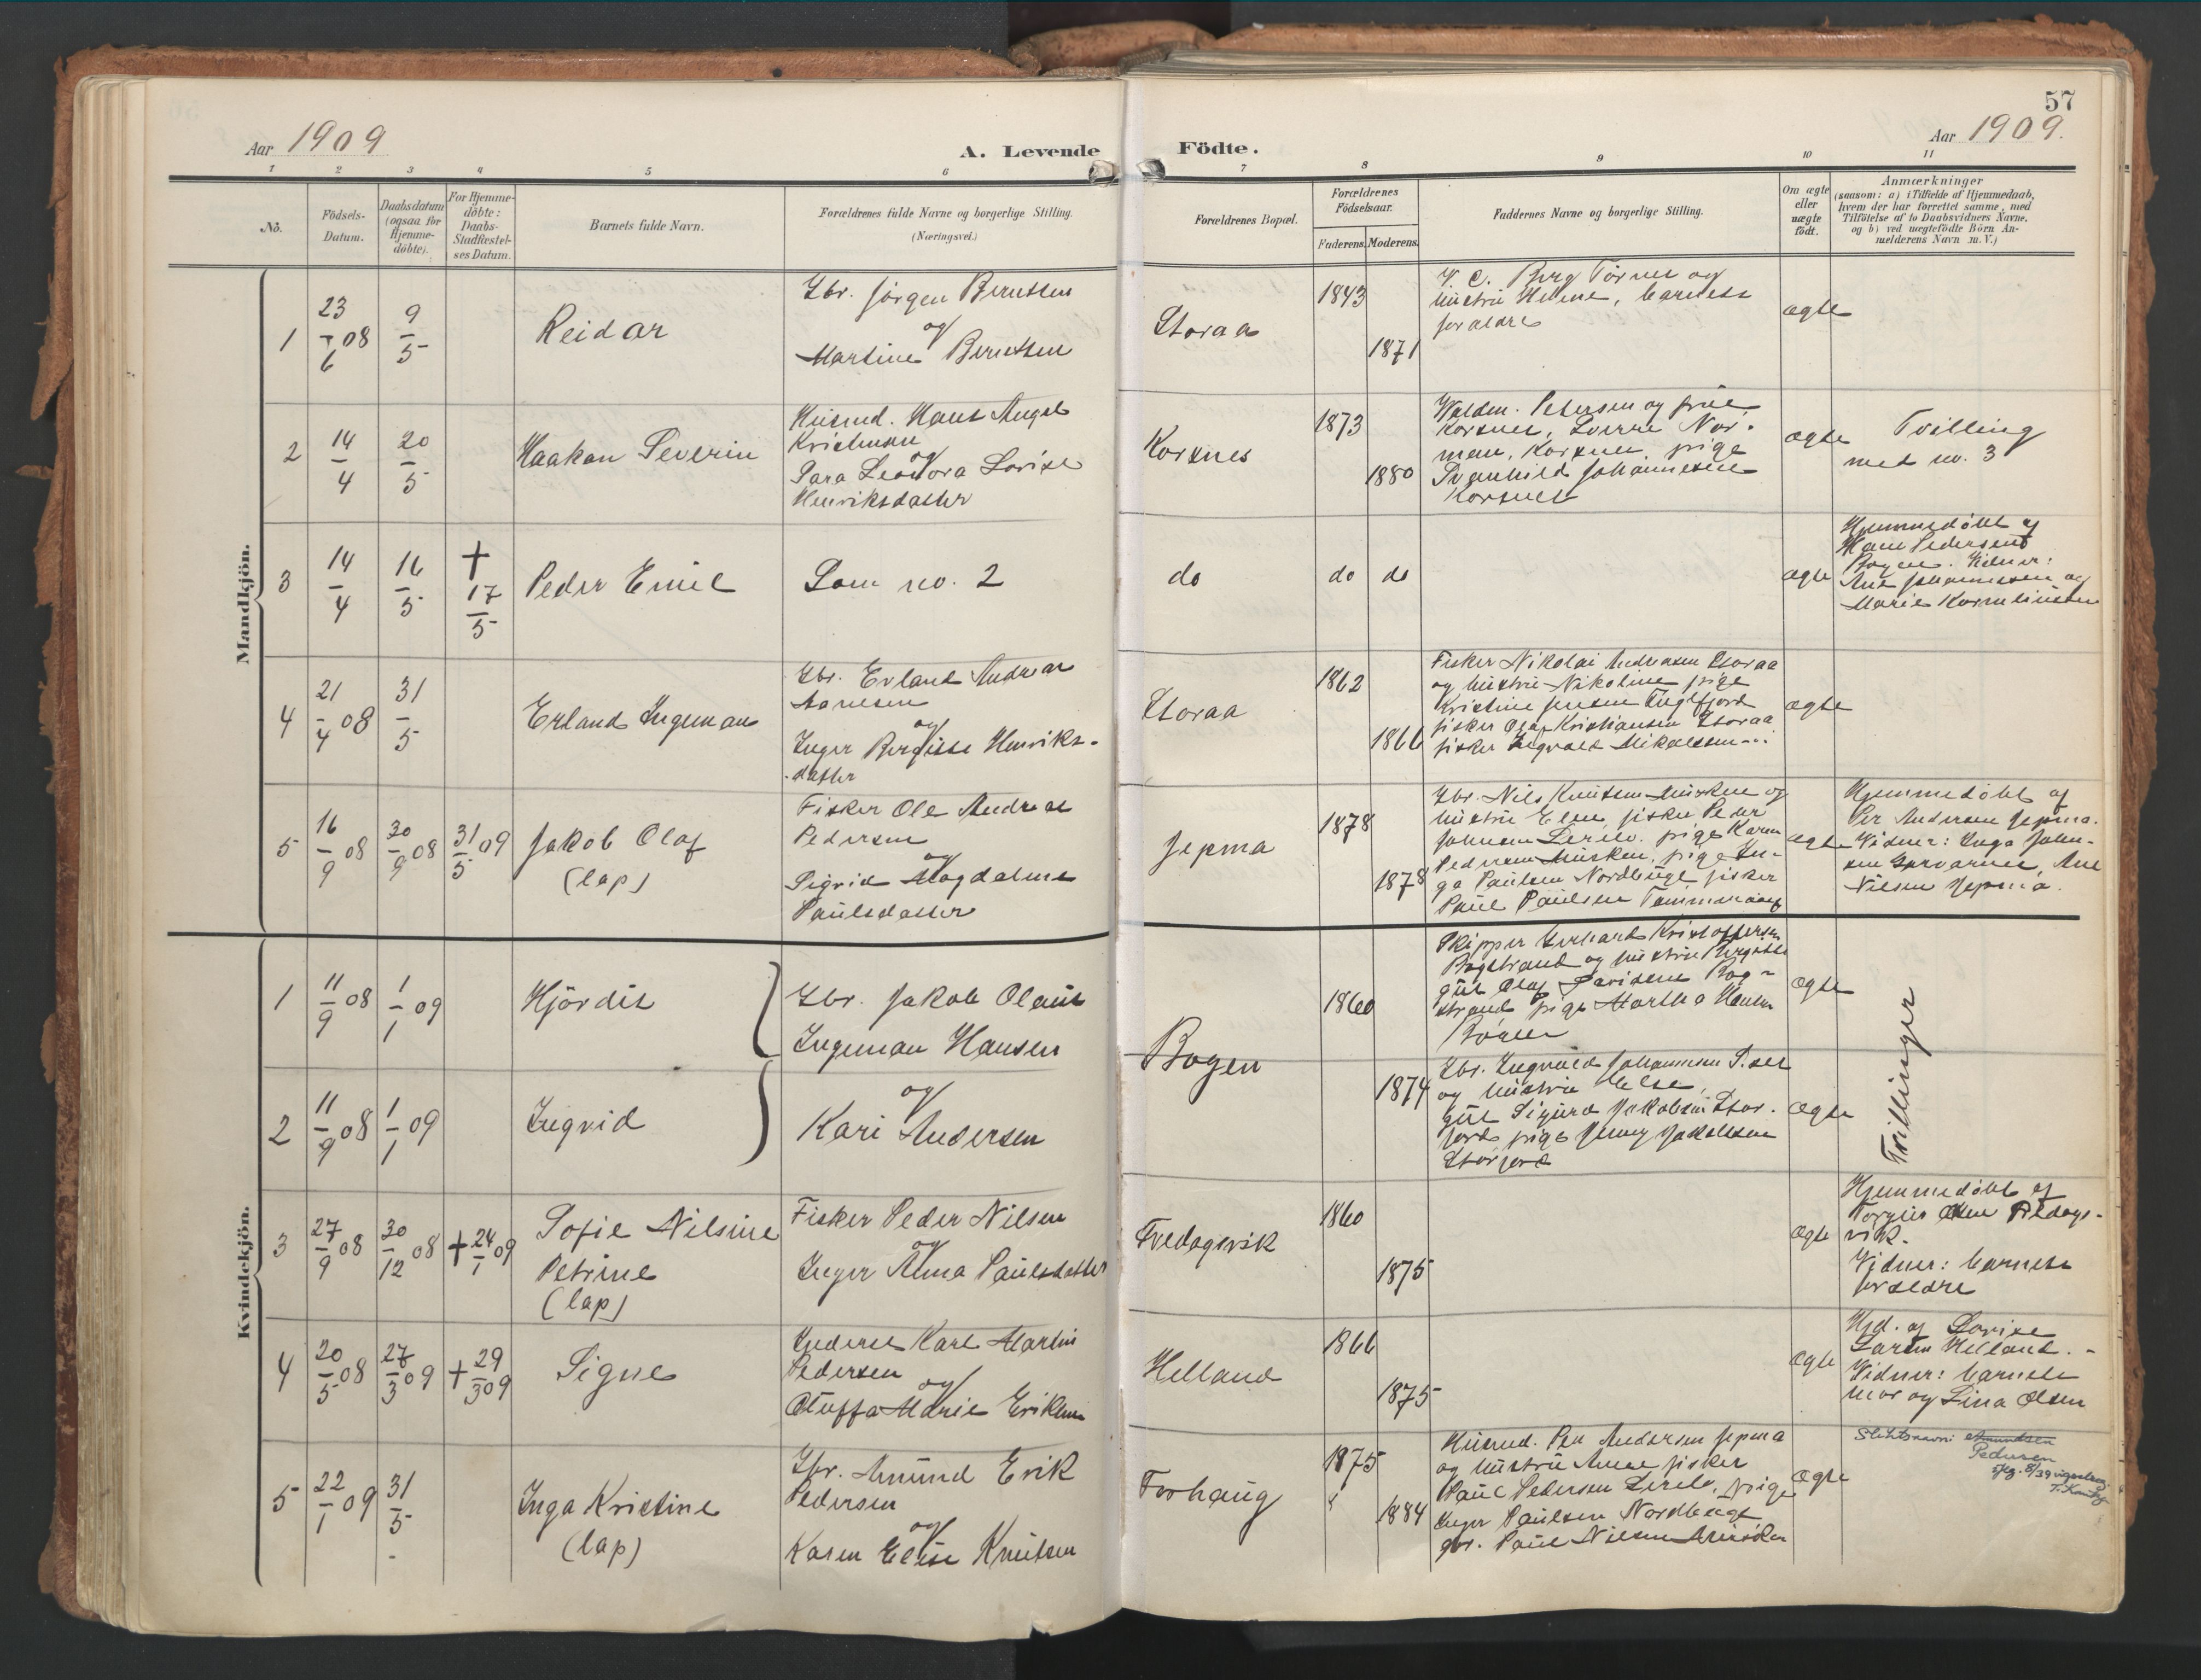 57
Aar 1909
A. Levende Födte.
Aar 1909.
1 2 3 4 5 6 7 8 9 10 11
No.
Födsels-
Datum.
Daabsdatum
(ogsaa for
Hjemme-
döbte).
For Hjemme-
döbte:
Daabs-
Stadfæstel-
ses Datum.
Barnets fulde Navn.
Forældrenes fulde Navne og borgerlige Stilling.
(Næringsvei.)
Forældrenes Bopæl.
Forældrenes
Födselsaar.
Faderens. Moderens.
Faddernes Navne og borgerlige Stilling.
Om ægte
eller
uægte
födt.
Anmærkninger
(saasom: a) i Tilfælde af Hjemmedaab,
hvem der har forrettet samme, med
Tilföielse af to Daabsvidners Navne,
og b) ved uægtefödte Börn An-
melderens Navn m. V.)
Mandkjön.
1
23/6 08
9/5
Reidar
Gbr. Jörgen Berntsen
og
Martine Berntsen
Storaa
1843
1871
hustru barnets
forældre
ægte
2
14/4
20/5
Haakon Severin
Husmd. Hans Angel
Kristensen
og
Sara Leonora Lovise
Henriksdatter
Korsnes
1873
1880
Waldm. Petersen og frue
Korsnes, Sverre Nor-
man, Korsnes, pige
Svanhild Johannesen
Korsnes
ægte
Tvilling
med no. 3
3
14/4
16/5
† 17/5
Peder Emil
Som no. 2
do
do do
ægte
Hjemmedöbt af
Hans Pedersen
Bogen. Vidner:
Ane Johannessen og
Marie Korneliussen
4
21/4 08
31/5
Erland Ingeman
Gbr. Erland Andreas
Arnesen
og
Inger Bergitte Henriks-
datter
Storaa
1862
1866
Fisker Nikolai Andreasen Storaa
og hustru Nikoline pige
Kristine Jensen
fisker Olaf Kristiansen Storaa
fisker Ingvald Mikalsen
ægte
5
16/9 08
30/9 08
31/5 09
Jakob Olaf
(lap)
Fisker Ole Andreas
Pedersen
og
Sigrid Magdalene
Paulsdatter
Jepma
1878
1878
Gbr. Nils Knutsen Musken og
hustru Elen, fisker Peder
Johnsen pige Karen
Pedersen Musken, pige In-
ga Paulsen Nordbugt fisker
Paul Paulsen
ægte
Hjemmedöbt af
Per Andersen Jepma.
Vidner: Inga John-
sen Ane
Nilsen Jepma.
Kvindekjön.
1
11/9 08
1/1 09
Hjördis
Gbr. Jakob Olaus
Ingeman Hansen
Bogen
1860
Skipper Gerhard Kristoffersen
Bogstrand og hustru Bergitte
gut Olaf Bog-
strand pige Martha Hansen
Bogen
ægte
Tvillinger
2
11/9 08
1/1 09
Ingrid
og
Kari Andersen
1874
Gbr. Ingvald Johannesen
og hustru Else,
gut Sigurd Jakobsen Stor-
fjord pige Jenny Jakobsen
Storfjord
ægte
3
27/9 08
30/12 08
† 24/1 09
Sofie Nilsine
Petrine
(lap)
Fisker Peder Nilsen
og
Inger Anna Paulsdatter
Fredagsvik
1860
1875
ægte
Hjemmedöbt af
Olsen Fredags-
vik.
Vidner: barnets
forældre
4
20/5 08
27/3 09
† 29/3 09
Signe
Inderst Karl Martin
Pedersen
og
Oluffa Marie Eriksen
Helland
1866
1875
ægte
Hjd. af Lovise
Larsen Helland.
Vidner: barnets
mor og Lina Olsen
5
22/1 09
31/5
Inga Kristine
(lap)
Gbr. Amund Erik
Pedersen
og
Karen Elise Knutsen
Forhaug
1875
1884
Husmd. Per Andersen Jepma
og hustru Anne fisker
Paul Pedersen pige
Inger Paulsen Nordbugt
gbr. Paul Nilsen Musken
ægte
Slektsnavn: Amundsen
Pedersen